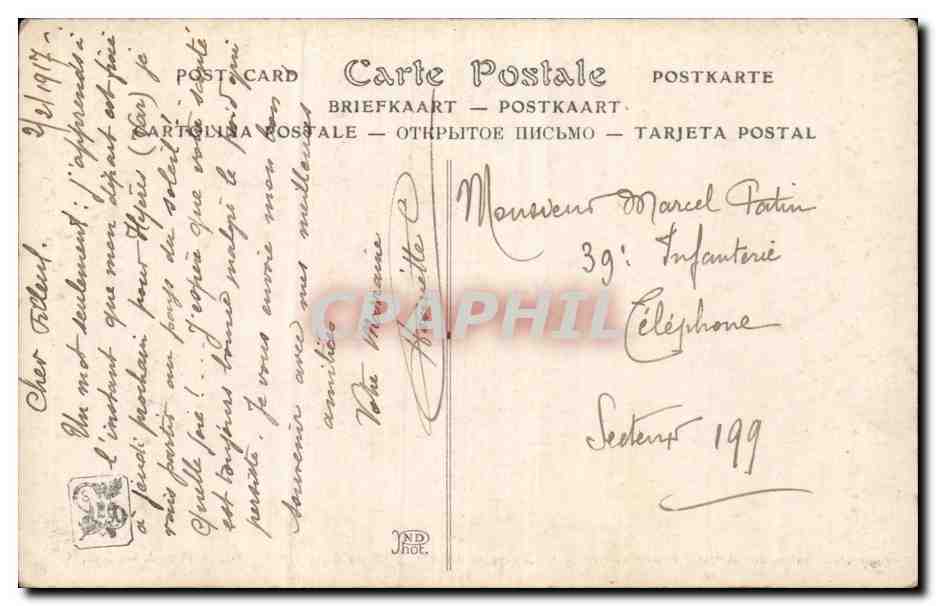 POST CARD Carte Postale POSTKARTE
BRIEFKAART — POSTKAART
CARTOLINA POSTALE — ОТКРЫТОЕ ПИСЬМО — TARJETA POSTAL
2/2/1917 -
Cher Filleul.
Un mot seulement : j'apprends à
l'instant que mon départ est fixé
à jeudi prochain pour Hyères (Var) je
vais partir au pays du soleil !
Quelle joie ! ... J'espère que votre santé
est toujours bonne malgré le froid qui
persiste. Je vous envoie mon bon
souvenir avec mes meilleures
amitiés
Votre Marraine
Henriette P
Monsieur Marcel Patin
39e Infanterie
Téléphone
Secteur 199
ND
Phot.
CPAPHIL